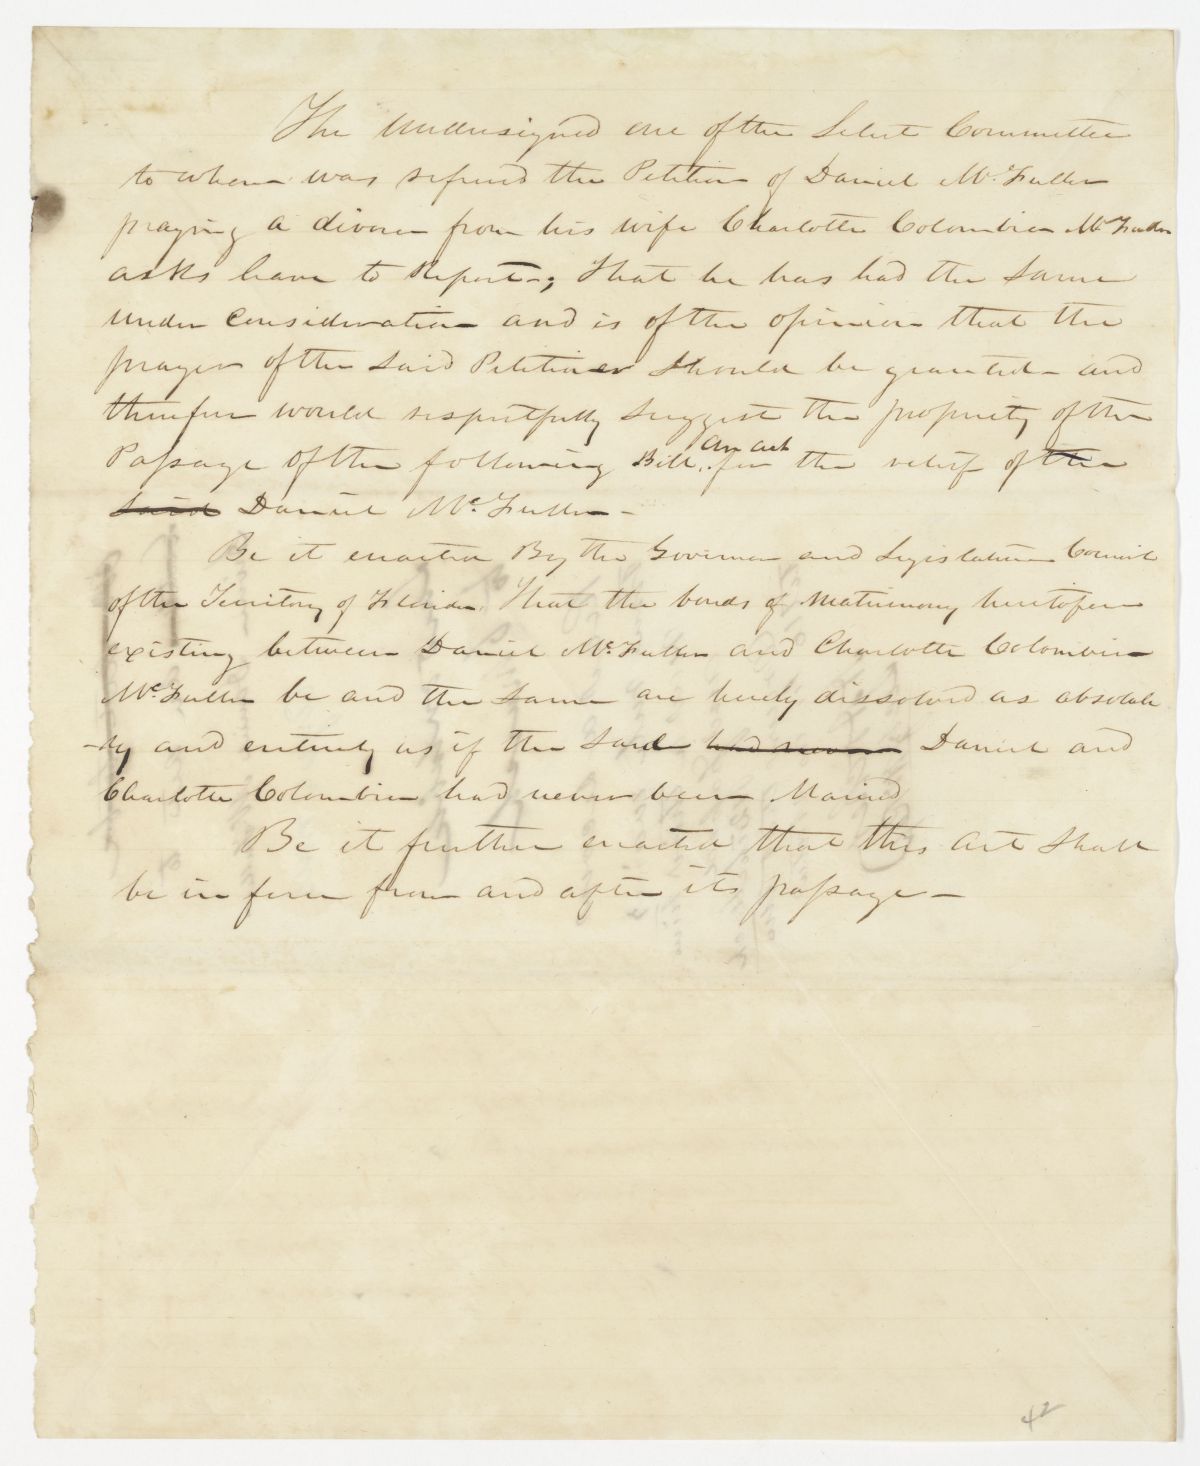 The Undersigned one of the Select Committee
to whom was refered the Petition of Daniel Mc.Fuller
praying a divorce from his wife Charlotte Colombia Mc.Fuller
asks leave to Report-; That he has had the same
under Consideration and is of the opinion that the
prayer of the said Petitioner should be granted - and
therefore would respectfully suggest the propriety of the
Passage of the following Bill, An act for the relief of the
said Daniel Mc.Fuller -
Be it enacted By the Governor and Legislative Council
of the Territory of Florida, That the bonds of Matrimony heretofore
existing between Daniel Mc.Fuller and Charlotte Colombia
Mc.Fuller be and the same are hereby dissolved as absolute
-ly and entirely as if the said had never Daniel and
Charlotte Colombia had never been Maried
Be it further enacted that this act shall
be in force from and after its passage -
42